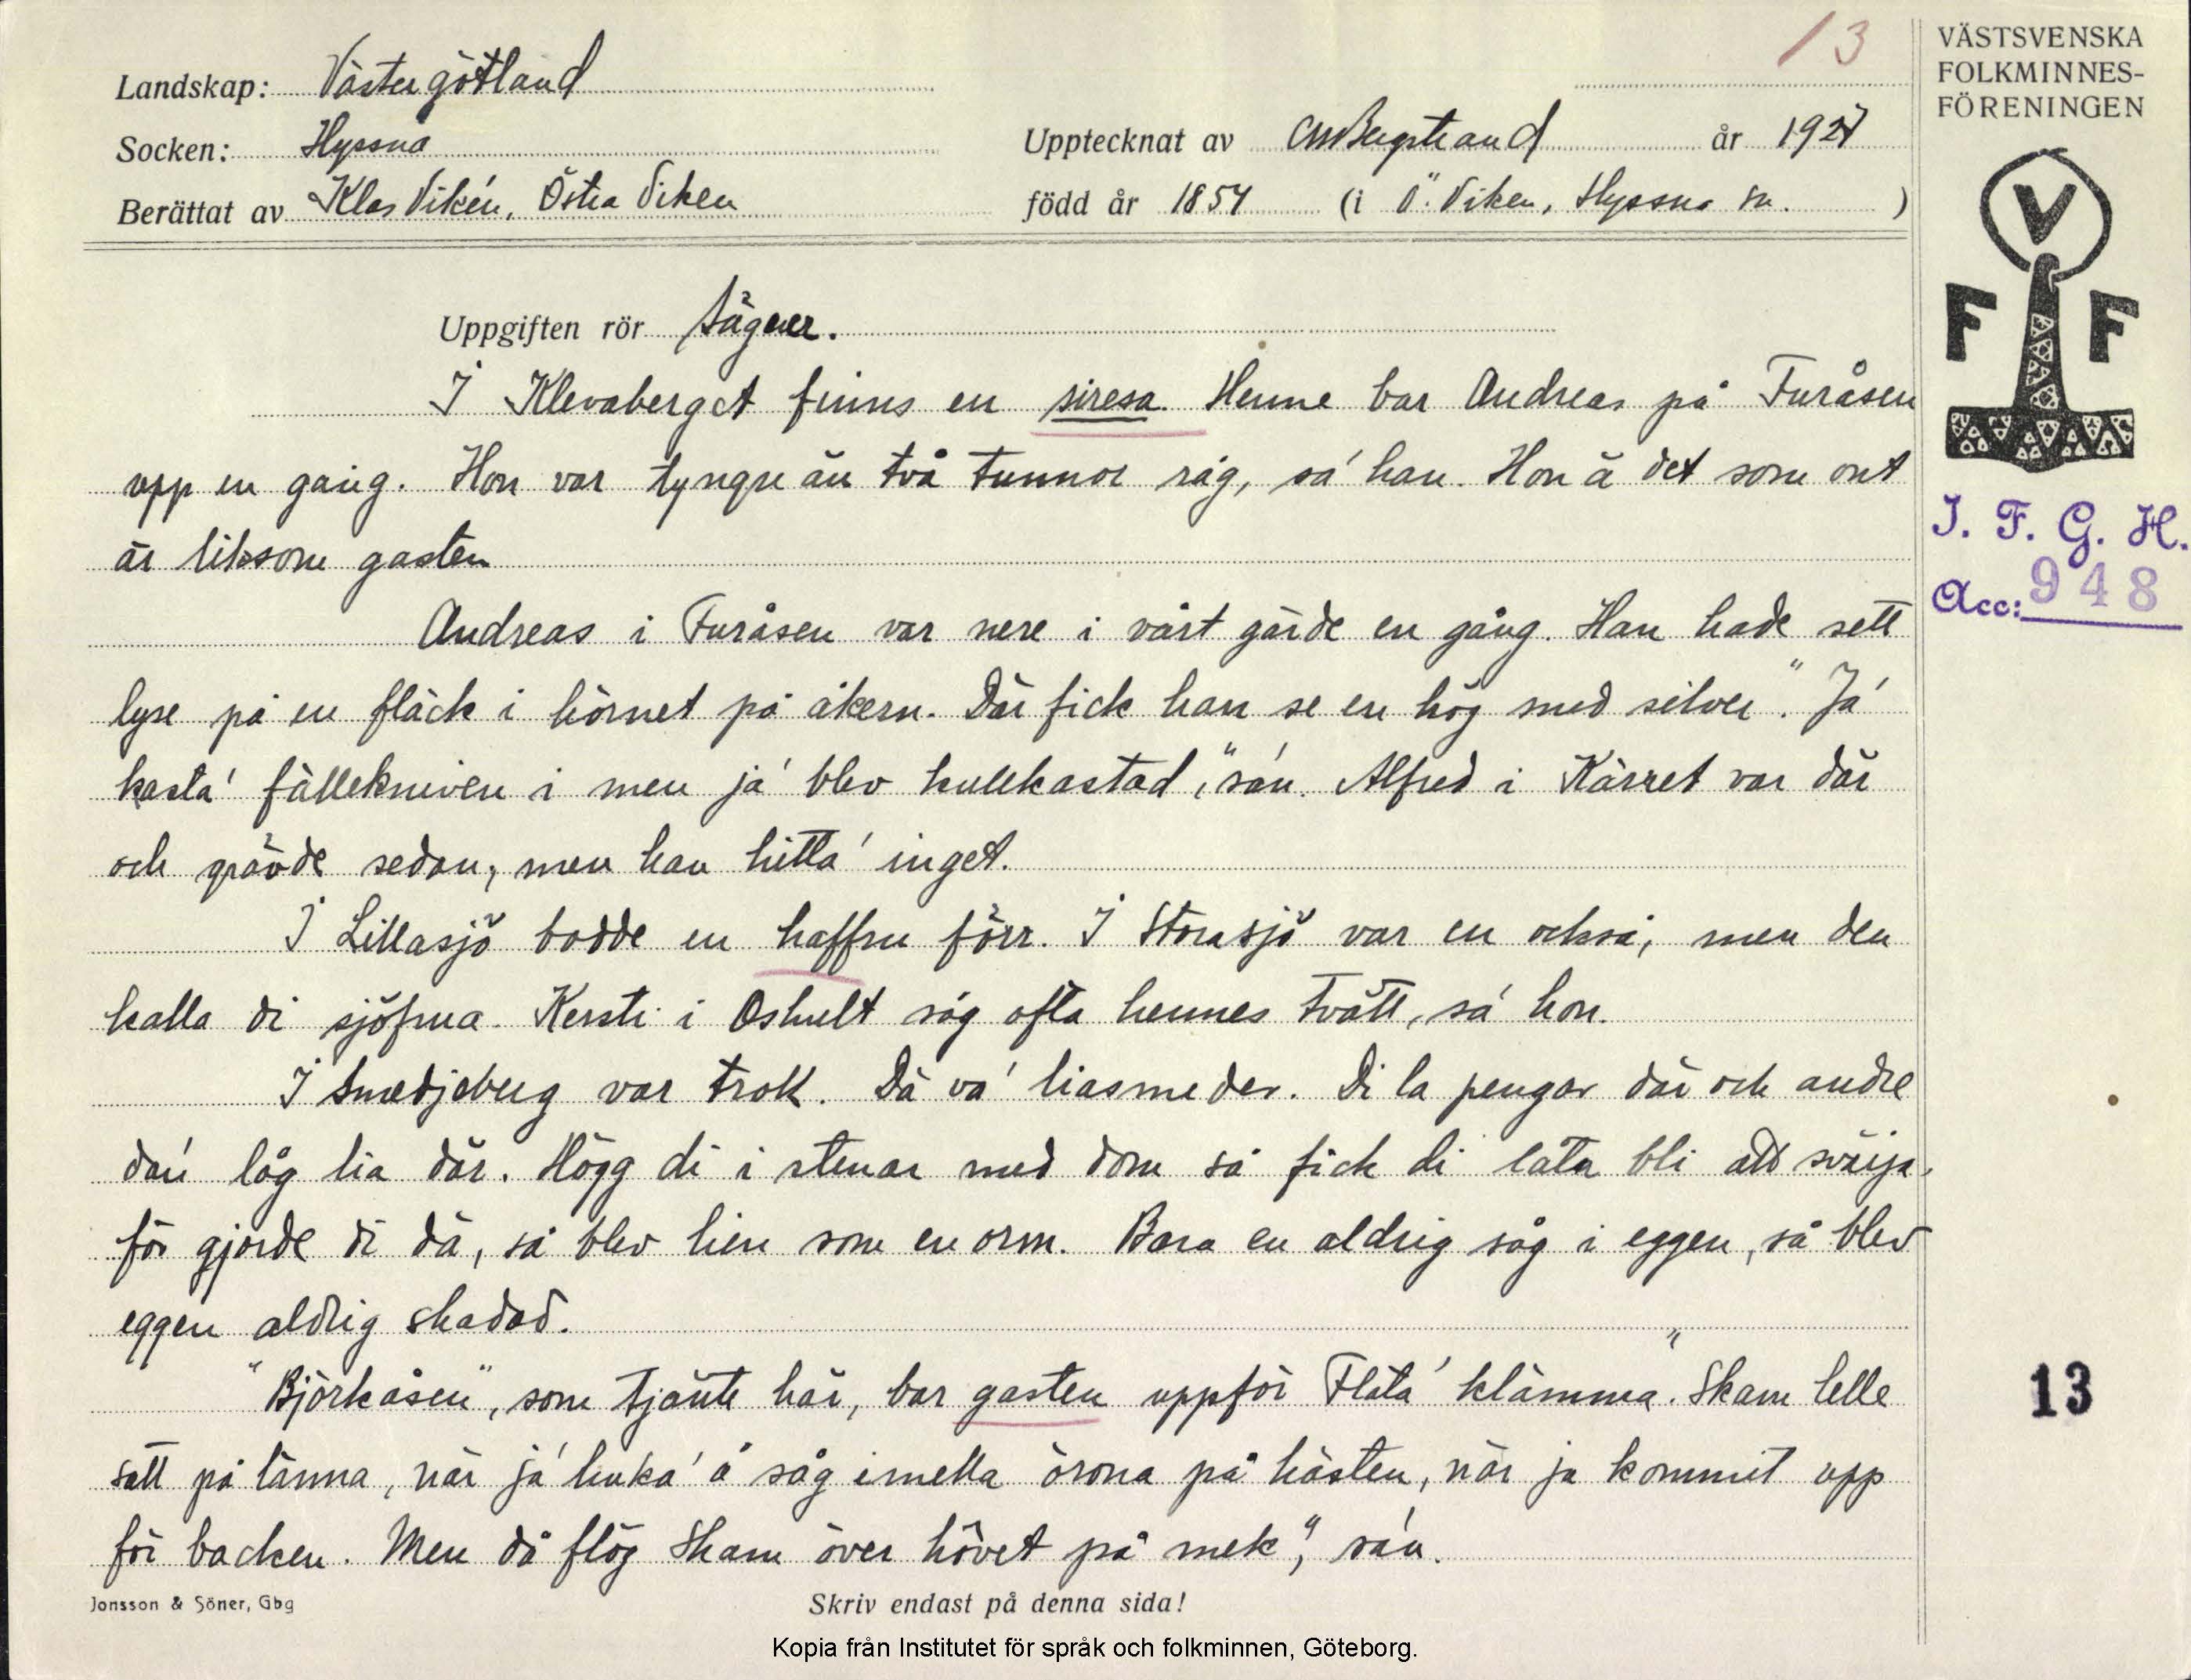 13
VÄSTSVENSKA
FOLKMINNES-
FÖRENINGEN
Landskap: Västergötland
Socken: Hyssna
Upptecknat av CMBergstrand år 1927
Berättat av Klas Vikén, Östra Viken
född år 1854 (i Ö. Viken, Hyssna sn. )
V
F F
I. F. G. H.
Acc: 948
Uppgiften rör Sägner.
I Klevaberget finns en siresa. Henne bar Andreas på Furåsen
upp en gång. Hon var tyngre än två tunnor råg, sá han. Hon ä det som ont
är liksom gasten
Andreas i Furåsen var nere i vårt gärde en gång. Han hade sett
lyse på en fläck i hörnet på åkern. Där fick han se en hög med silver. "Já
kasta' fällekniven i men já blev kullkastad," sán. Alfred i Kärret var där
och grävde sedan, men han hitta' inget.
I Lillasjö bodde en haffru förr. I Storasjö var en också, men den
kalla di sjöfrua. Kersti i Oshult såg ofta hennes tvätt, sá hon.
I Smedjeberg var troll. Dä va' liasmeder. Di la pengar där och andre
dan låg lia där. Högg di i stenar med dom så fick di låta bli att svärja,
för gjorde di dä, så blev lien som en orm. Bara en aldrig såg i eggen, så blev
eggen aldrig skadad.
"Björkåsen", som tjänte här, bar gasten uppför Flata' klämma. "Skam lelle
satt på länna, när já huka' å såg imella örona på hästen, när ja kommit upp
för backen. Men då flög Skam över hövet på mek", sán.
13
Jonsson & Söner, Gbg
Skriv endast på denna sida!
Kopia från Institutet för språk och folkminnen, Göteborg.